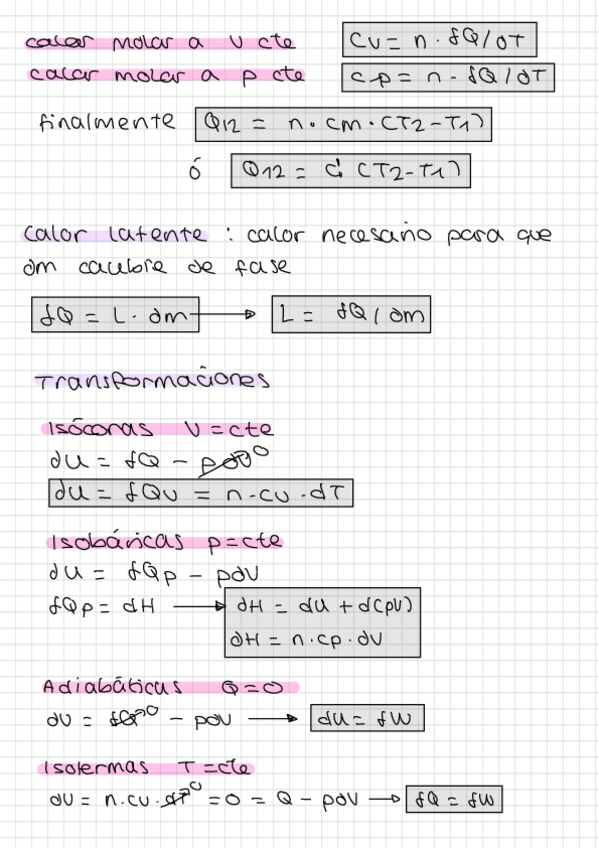 calor molar a v cte  Cv = n · δQ/∂T
calor molar a p cte  Cp = n · δQ/∂T
finalmente  Q12 = n · cm · (T2-T1)
ó  Q12 = C · (T2-T1)
calor latente : calor necesario para que
∂m cambie de fase
δQ = L · ∂m → L = δQ/∂m
Transformaciones
Isócoras V=cte
dU = δQ - pdV⁰
dU = δQv = n·cv·dT
Isobáricas p=cte
dU = δQp - pdV
δQp = dH → dH = dU + d(pV)
dH = n·cp·dV
Adiabáticas Q=0
dU = δQ⁰ - pdV → dU = δW
Isotermas T=cte
dU = n.cv.dT⁰ = 0 = Q - pdV → δQ = δW